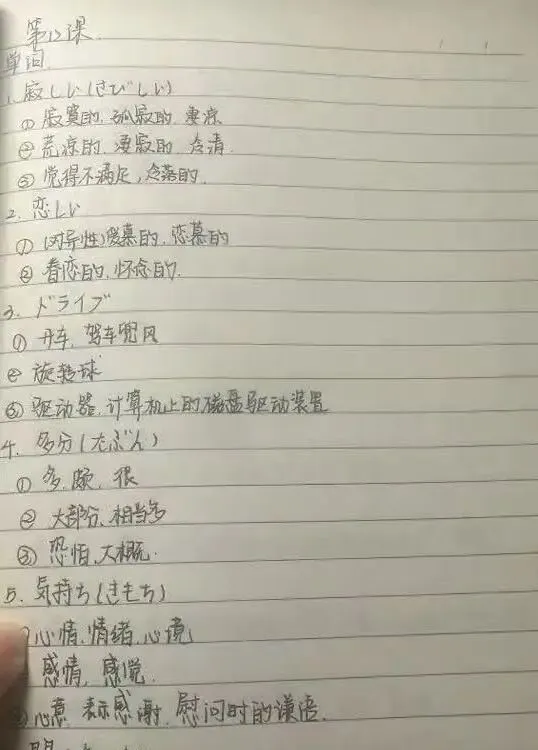 第13课
单词
1. 寂しい(さびしい)
① 寂寞的、孤寂的、凄凉
② 荒凉的、凄寂的、冷清
③ 觉得不满足,冷落的.
2. 恋しい
① (对异性)爱慕的、恋慕的
② 眷恋的、怀念的.
3. ドライブ
① 开车、驾车兜风
② 旋转球
③ 驱动器,计算机上的磁盘驱动装置
4. 多分(たぶん)
① 多、颇、很
② 大部分、相当多
③ 恐怕、大概.
5. 気持ち(きもち)
心情、情绪、心境
感情、感觉.
心意 表示感谢、慰问时的谦语.